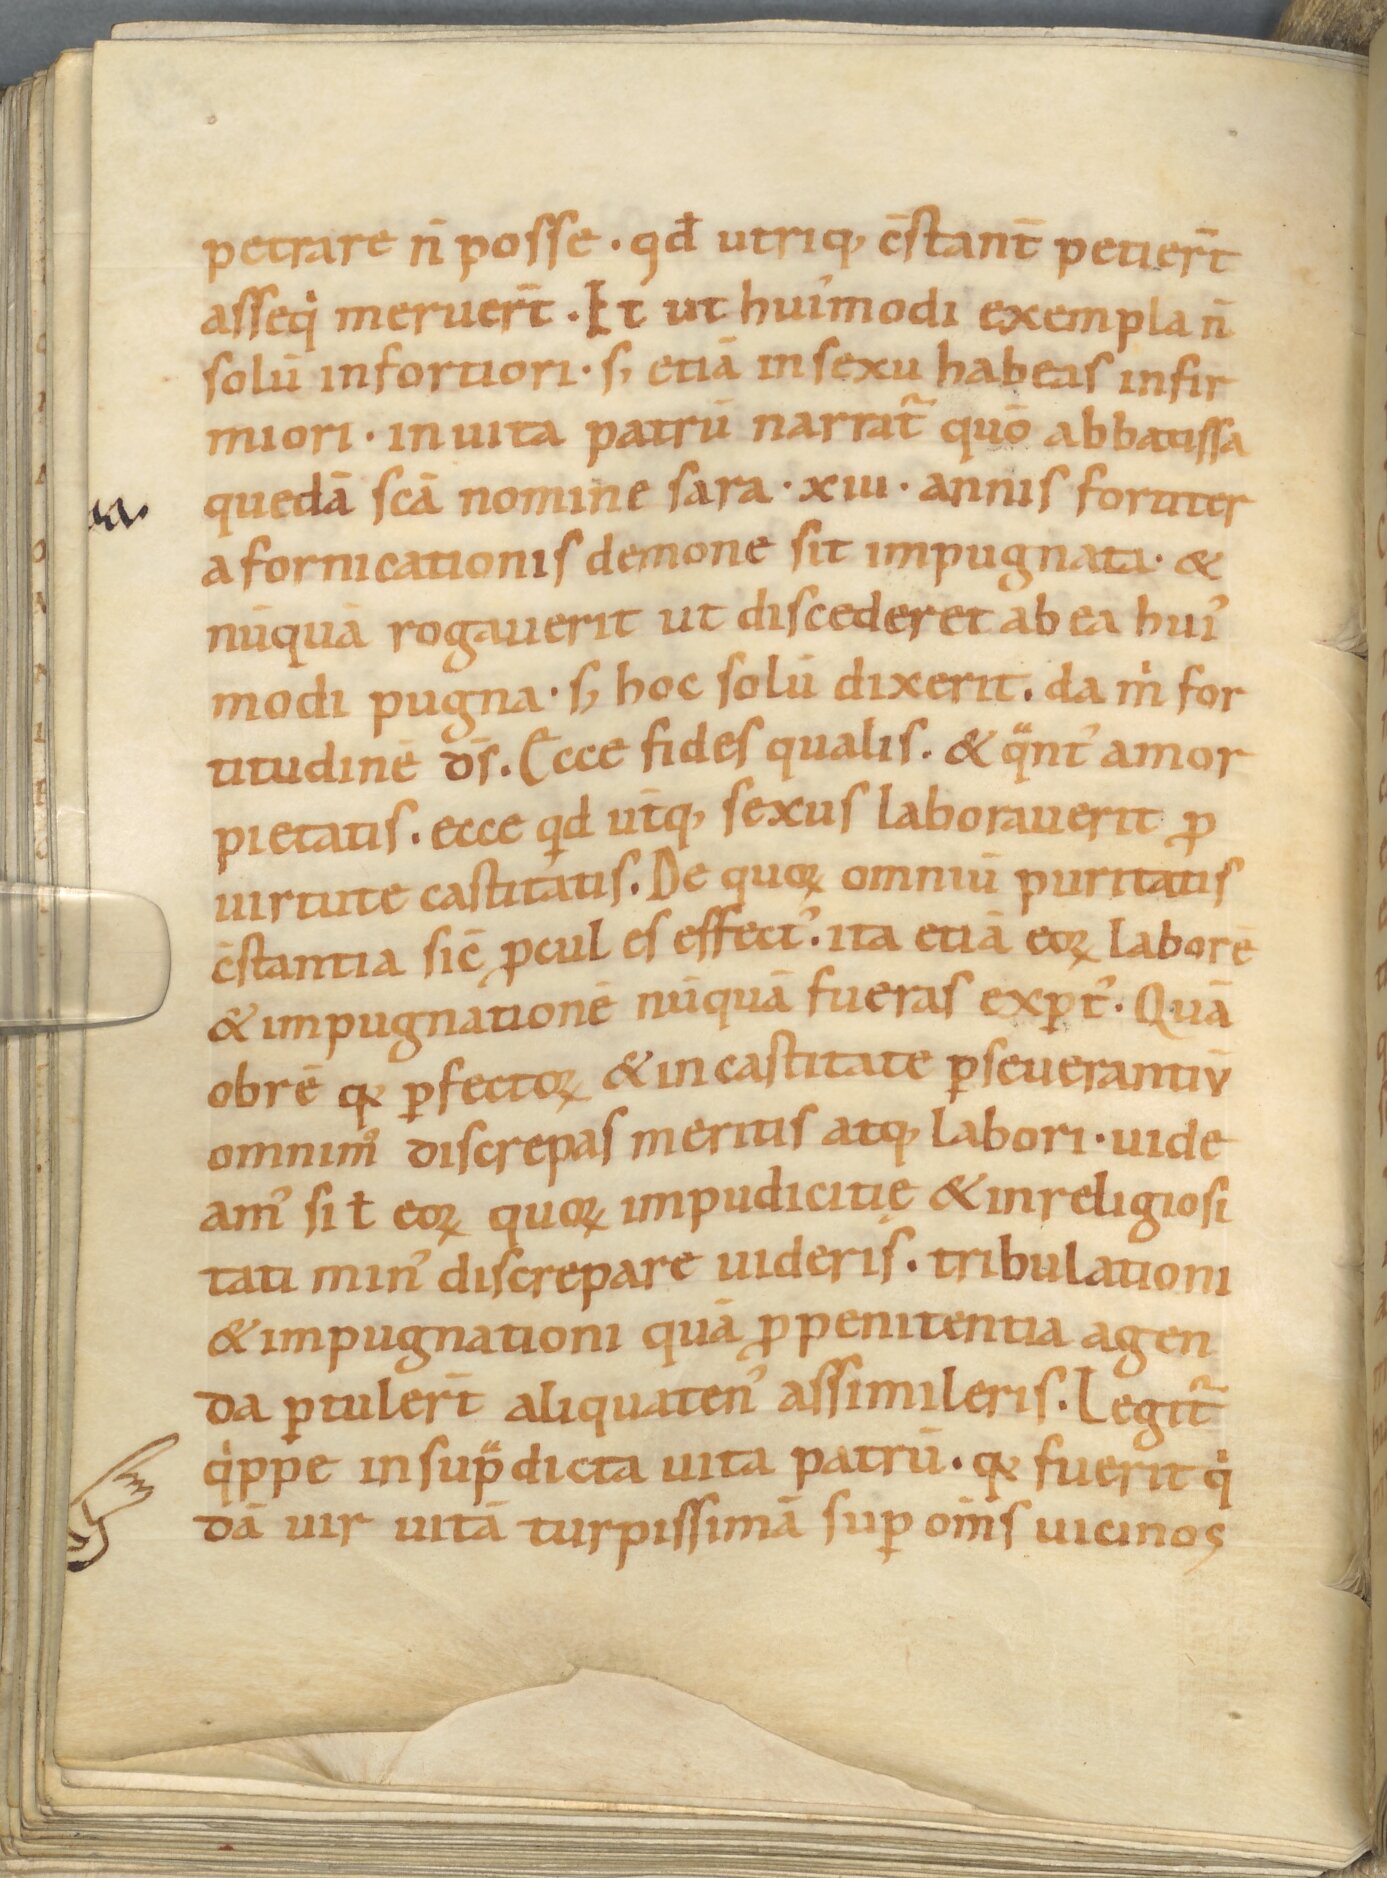 petrare n̄ posse · qđ utriq, c̄stant̄ petier̄t
asseq̇ meruer̄t . Et ut hui᾽modi exempla n̄
solū infortiori · s, etiā in sexu habeas infir
miori · in uita patrū narrat᷑ quō abbatissa
quedā scā nomine sara · xiii · annis fortiter
a fornicationis demone sit impugnata · &
nūquā rogauerit ut discederet ab ea hui᾽
modi pugna · s, hoc solū dixerit . da ṁ for
titudinē ds̄ . Ecce fides qualis . & q̈nt᾽ amor
pietatis . ecce qd ut̄q, sexus laborauerit ꝓ
uirtute castitatis . De quoꝝ omniū puritatis
c̄stantia sic̄ ꝓcul es effect᾽ . ita etiā eoꝝ laborē
& impugnationē nūquā fueras exꝑt᾽ . Quā
obrē qꝫ ꝑfectoꝝ & in castitate ꝑseuerantiū
omnim̊ discrepas meritis atq, labori · uide
am᾽ si ł eoꝝ quoꝝ impudicitię & inreligiosi
tati min᾽ discrepare uideris . tribulationi
& impugnationi quā ꝓ penitentia agen
da ꝑtuler̄t aliquaten᾽ assimileris . Legit᷑
q̇ppe in sup̈dicta uita patrū . qꝫ fuerit q̇
dā uir uitā turpissimā suꝑ om̄s uicinos